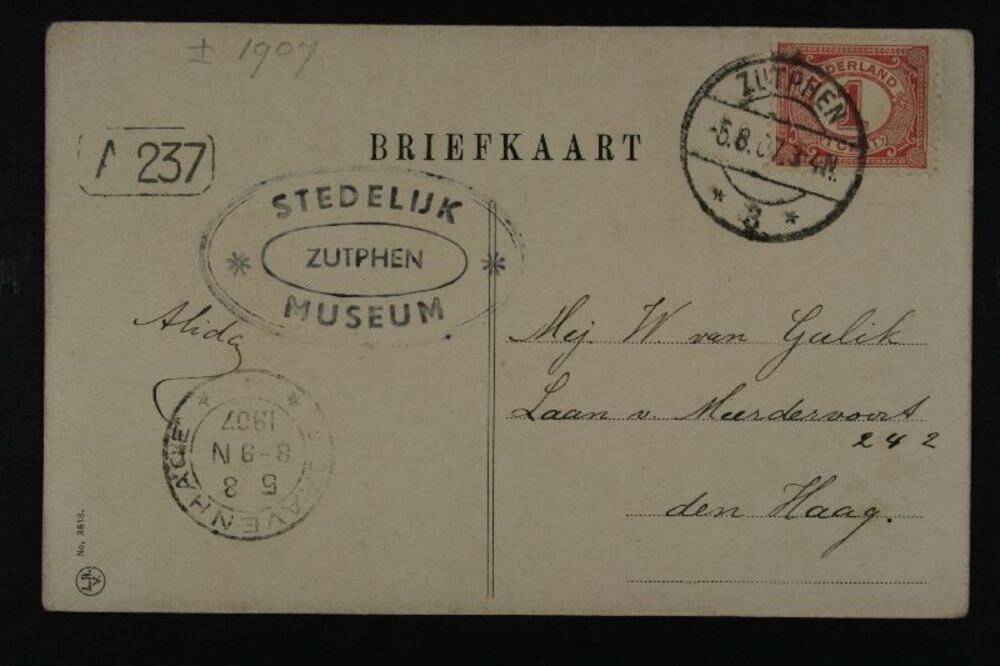 ± 1907
NEDERLAND
1
CENT
ZUTPHEN
5.8.07 3-4N.
3
BRIEFKAART
A 237
STEDELIJK
ZUTPHEN
MUSEUM
Alida
Mej. W. van Gulik
Laan v. Meerdervoort
242
den Haag.
'S-GRAVENHAGE
5 8
8-9 N
1907
No. 3613.